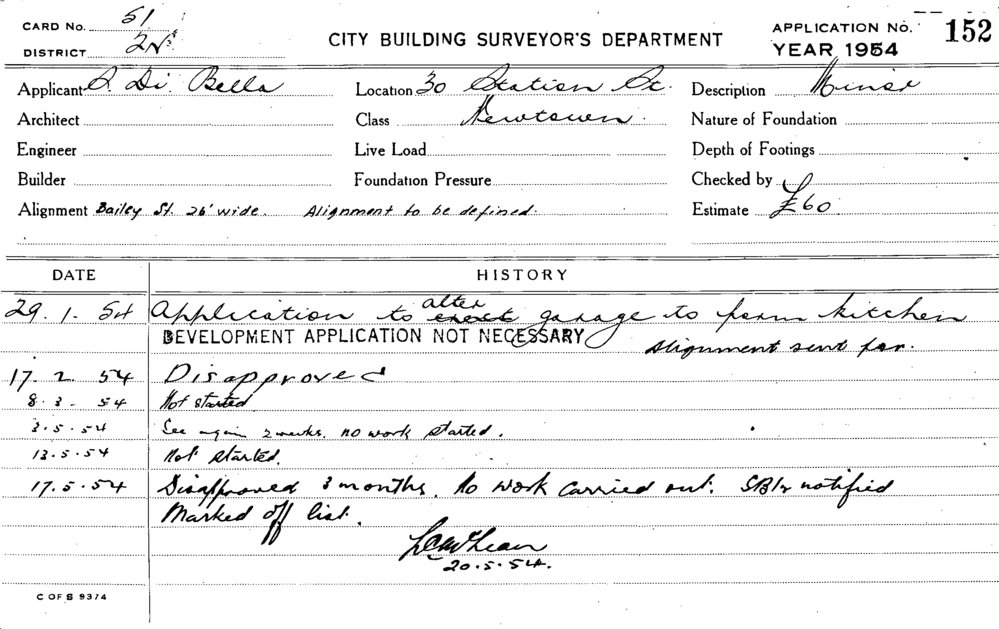 CARD No. 51
DISTRICT 2N
CITY BUILDING SURVEYOR'S DEPARTMENT
APPLICATION No. 152
YEAR 1954
Applicant S. Di. Bella
Location 30 Station St.
Description Minor
Architect
Class Newtown.
Nature of Foundation
Engineer
Live Load
Depth of Footings
Builder
Foundation Pressure
Checked by
Alignment Bailey St. 26' wide. Alignment to be defined.
Estimate £60
DATE HISTORY
29.1.54 Application to erect alter garage to form kitchen
DEVELOPMENT APPLICATION NOT NECESSARY
Alignment sent for.
17.2.54 Disapproved
8.3.54 Not started
3.5.54 See again 2 weeks. no work started.
13.5.54 Not started.
17.5.54 Disapproved 3 months. No work carried out. notified
Marked off list.
20.5.54.
C OF S 9374